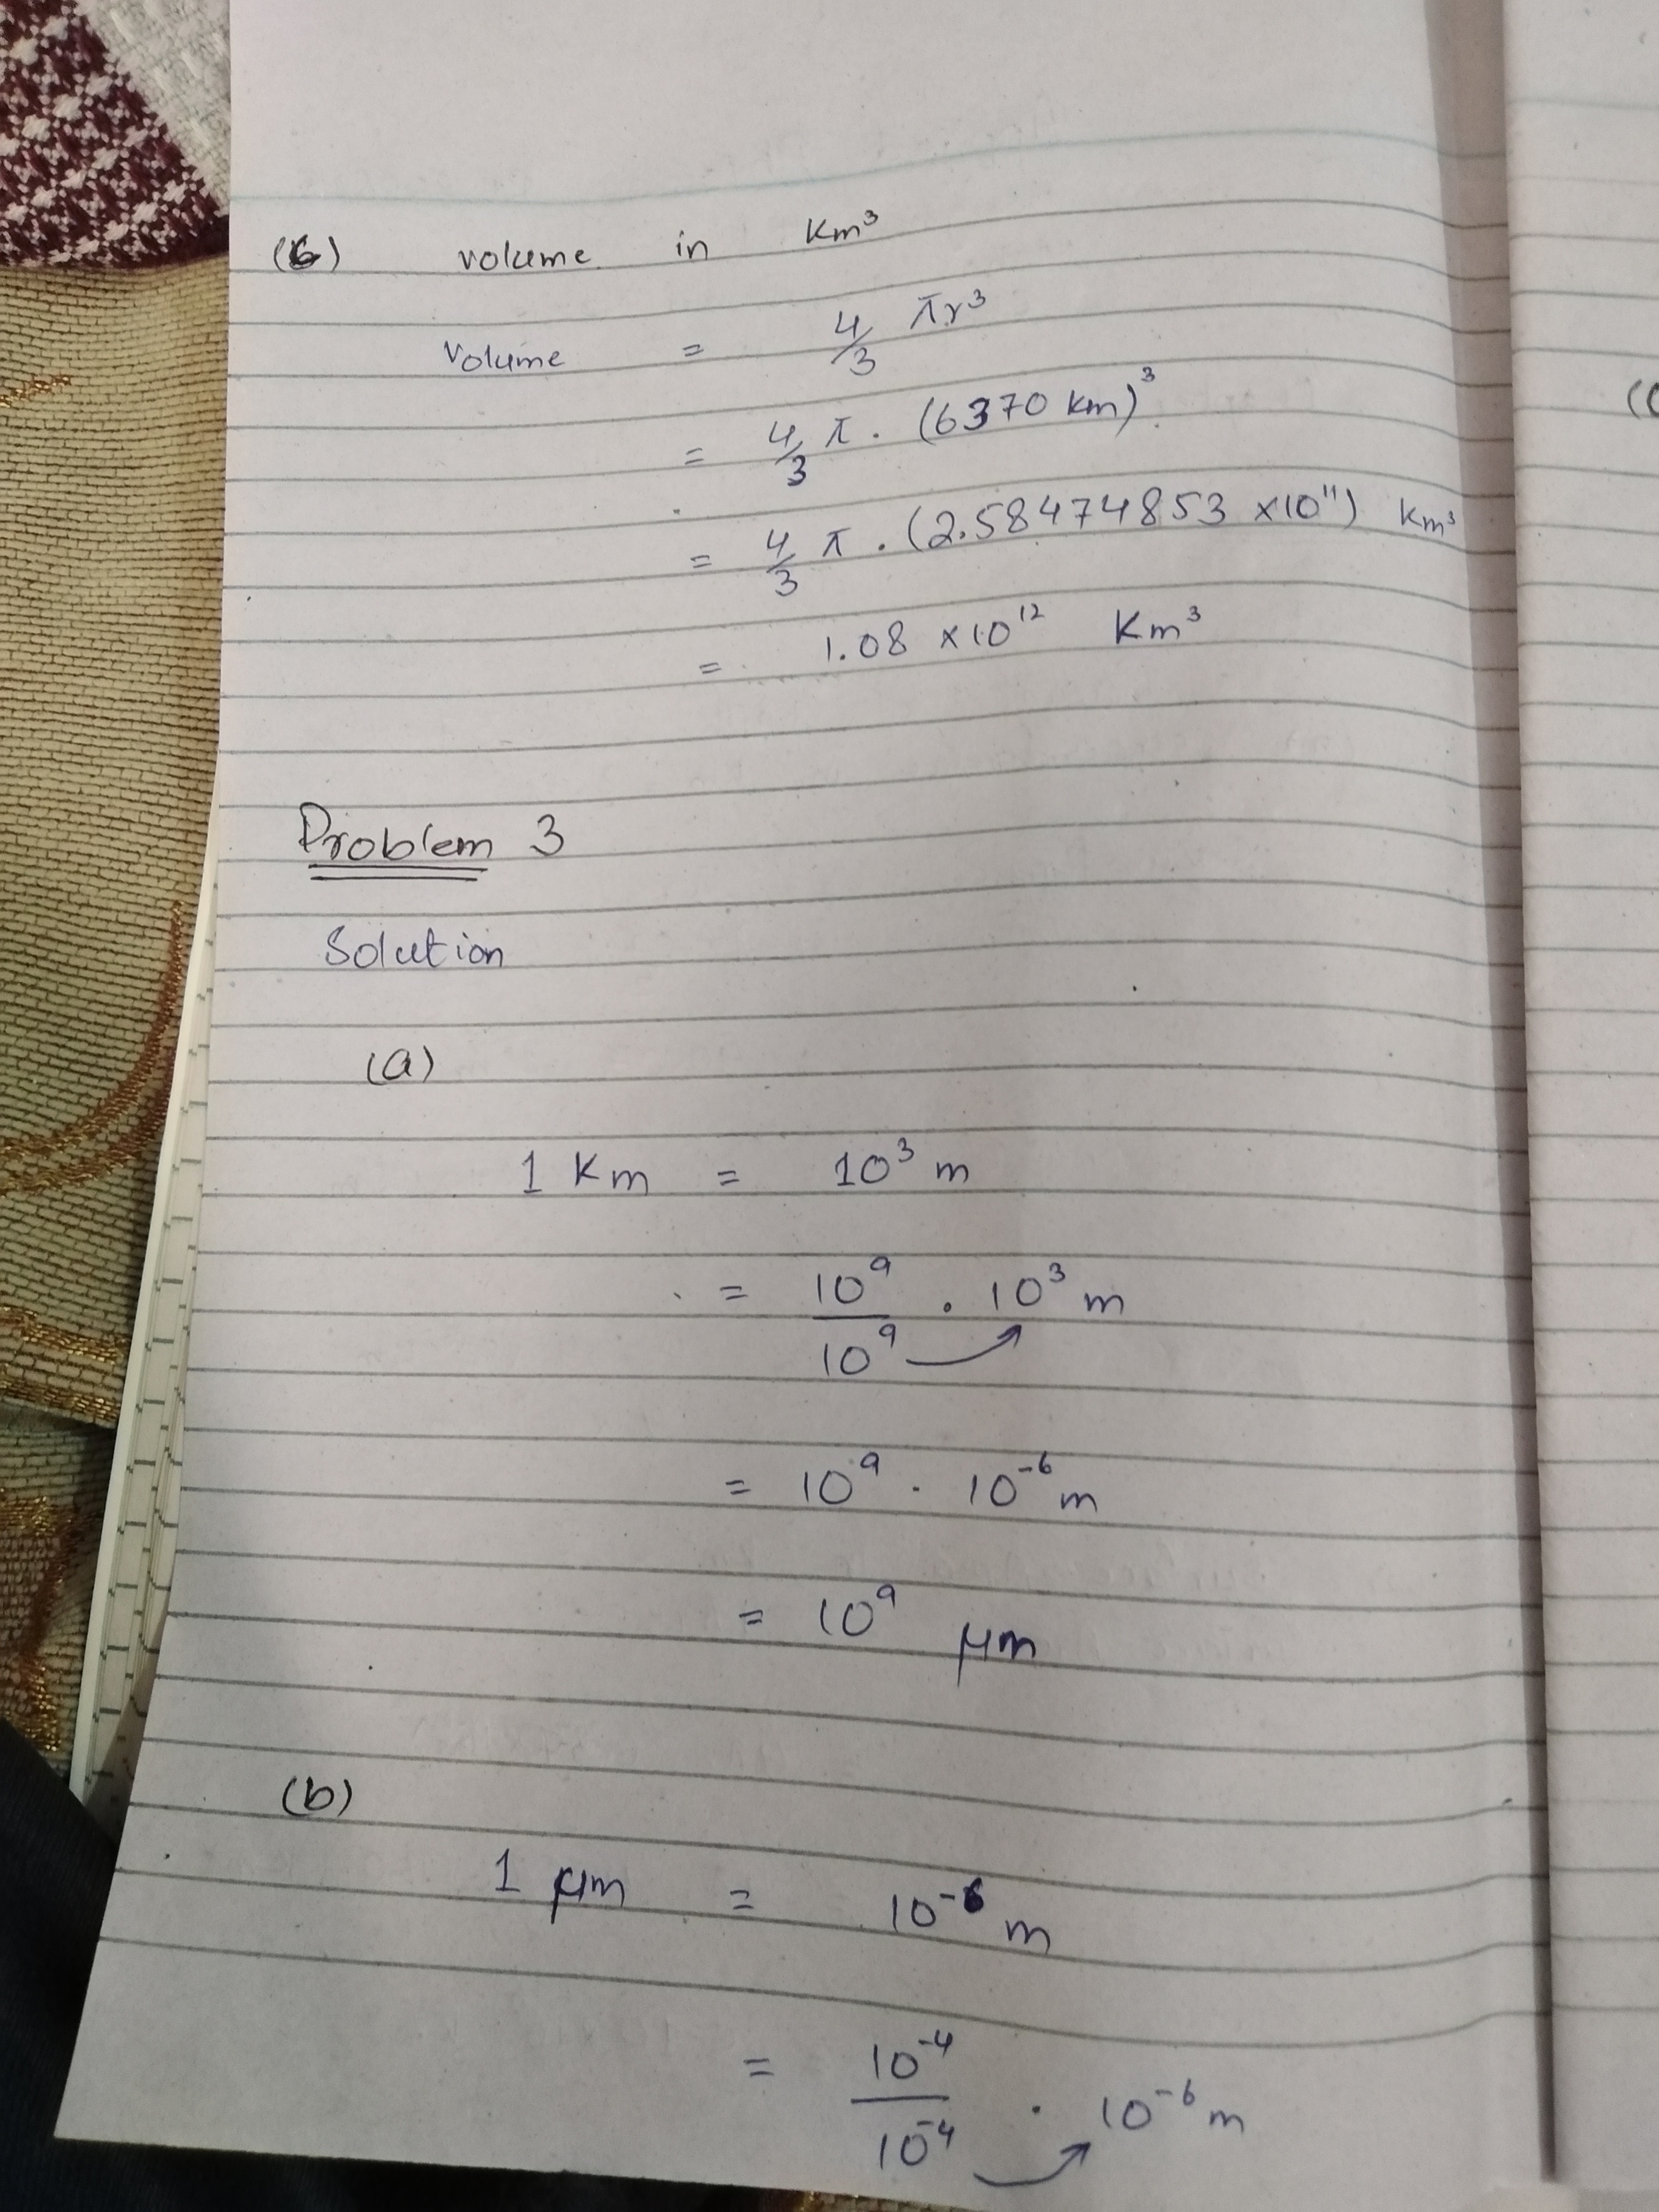 (6) volume in Km³
Volume = 4/3 πr³
= 4/3 π . (6370 km)³
= 4/3 π . (2.58474853 ×10¹¹) Km³
= 1.08 ×10¹² Km³
Problem 3
Solution
(a)
1 Km = 10³ m
= 10⁹/10⁹ . 10³ m
= 10⁹ . 10⁻⁶ m
= 10⁹ μm
(b)
1 μm = 10⁻⁶ m
= 10⁻⁴/10⁻⁴ . 10⁻⁶ m